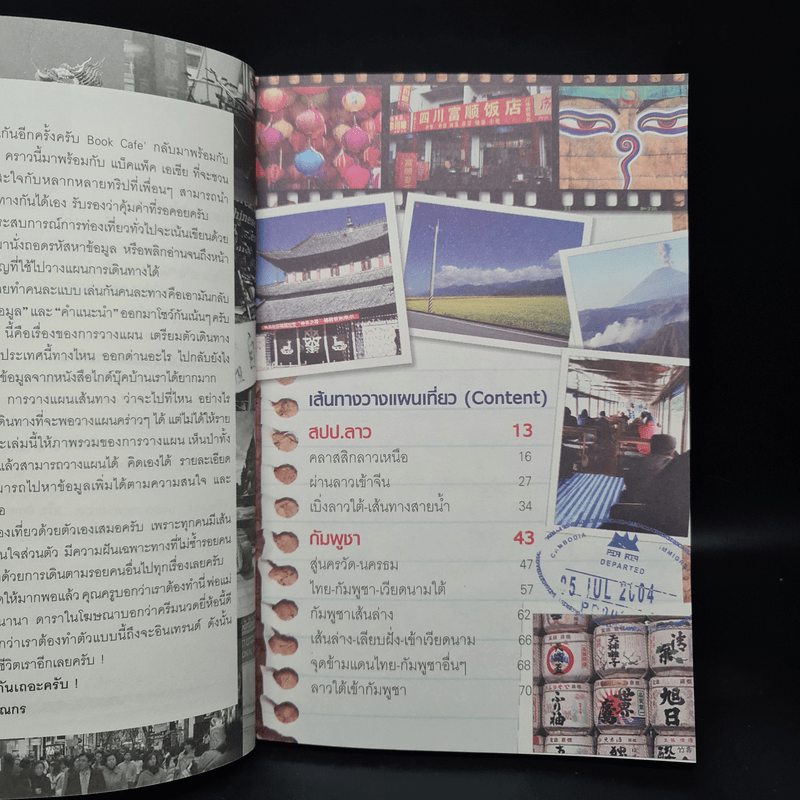 กันอีกครั้งครับ Book Cafe' กลับมาพร้อมกับ
คราวนี้มาพร้อมกับ แบ็คแพ็ค เอเชีย ที่จะชวน
ะใจกับหลากหลายทริปที่เพื่อนๆ สามารถนำ
ทางกันได้เอง รับรองว่าคุ้มค่าที่รอคอยครับ
ระสบการณ์การท่องเที่ยวทั่วไปจะเน้นเขียนด้วย
านั่งถอดรหัสหาข้อมูล หรือพลิกอ่านจนถึงหน้า
ญที่ใช้ไปวางแผนการเดินทางได้
ยทำคนละแบบ เล่นกันคนละทางคือเอามันกลับ
มูล" และ "คำแนะนำ" ออกมาโชว์กันเน้นๆ ครับ
นี้คือเรื่องของการวางแผน เตรียมตัวเดินทาง
ประเทศนี้ทางไหน ออกด่านอะไร ไปกลับยังไง
ข้อมูลจากหนังสือไกด์บุ๊คบ้านเราได้ยากมาก
การวางแผนเส้นทาง ว่าจะไปที่ไหน อย่างไร
ดินทางที่จะพอวางแผนคร่าวๆ ได้ แต่ไม่ได้ให้ราย
ะเล่มนี้ให้ภาพรวมของการวางแผน เห็นป่าทั้ง
แล้วสามารถวางแผนได้ คิดเองได้ รายละเอียด
ารถไปหาข้อมูลเพิ่มได้ตามความสนใจ และ
อ
องเที่ยวด้วยตัวเองเสมอครับ เพราะทุกคนมีเส้น
นใจส่วนตัว มีความฝันเฉพาะทางที่ไม่ซ้ำรอยคน
งด้วยการเดินตามรอยคนอื่นไปทุกเรื่องเลยครับ
ดให้มากพอแล้ว คุณครูบอกว่าเราต้องทำนี่ พ่อแม่
นานา ดาราในโฆษณาบอกว่าครีมนวดยี่ห้อนี้ดี
กว่าเราต้องทำตัวแบบนี้ถึงจะอินเทรนด์ ดังนั้น
ชีวิตเราอีกเลยครับ !
กันเถอะครับ !
ณกร
四川富顺饭店
เส้นทางวางแผนเที่ยว (Content)
สปป.ลาว 13
คลาสสิกลาวเหนือ 16
ผ่านลาวเข้าจีน 27
เบิ่งลาวใต้-เส้นทางสายน้ำ 34
กัมพูชา 43
สู่นครวัด-นครธม 47
ไทย-กัมพูชา-เวียดนามใต้ 57
กัมพูชาเส้นล่าง 62
เส้นล่าง-เลียบฝั่ง-เข้าเวียดนาม 66
จุดข้ามแดนไทย-กัมพูชาอื่นๆ 68
ลาวใต้เข้ากัมพูชา 70
CAMBODIA
DEPARTED
25 JUL 2004
旭日